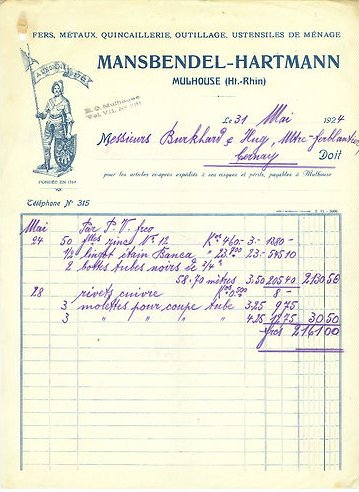 FERS, MÉTAUX, QUINCAILLERIE, OUTILLAGE, USTENSILES DE MÉNAGE
MANSBENDEL-HARTMANN
MULHOUSE (Ht.-Rhin)
R.C. Mulhouse
Le 31 Mai 1924
Messieurs Burkhard & Hug, Mtre-ferblantier
Cernay Doit
pour les articles ci-après expédiés à ses risques et périls, payables à Mulhouse
FONDÉE EN
Téléphone Nº 315
Mai Par P. V. fco
24 50 flles zinc Nº 12 Kos 460.- 3.- 1380.-
1/2 lingot étain Banca " 23.700 23.- 545 10
2 bottes tubes noirs de 3/4"
58.70 mètres 3.50 205 40 2130 50
28 rivets cuivre Kos 0.500 8 -
3 molettes pour coupe tube 3.25 9 75
3 " " " " 4.25 12 75 30 50
frcs 2161 00